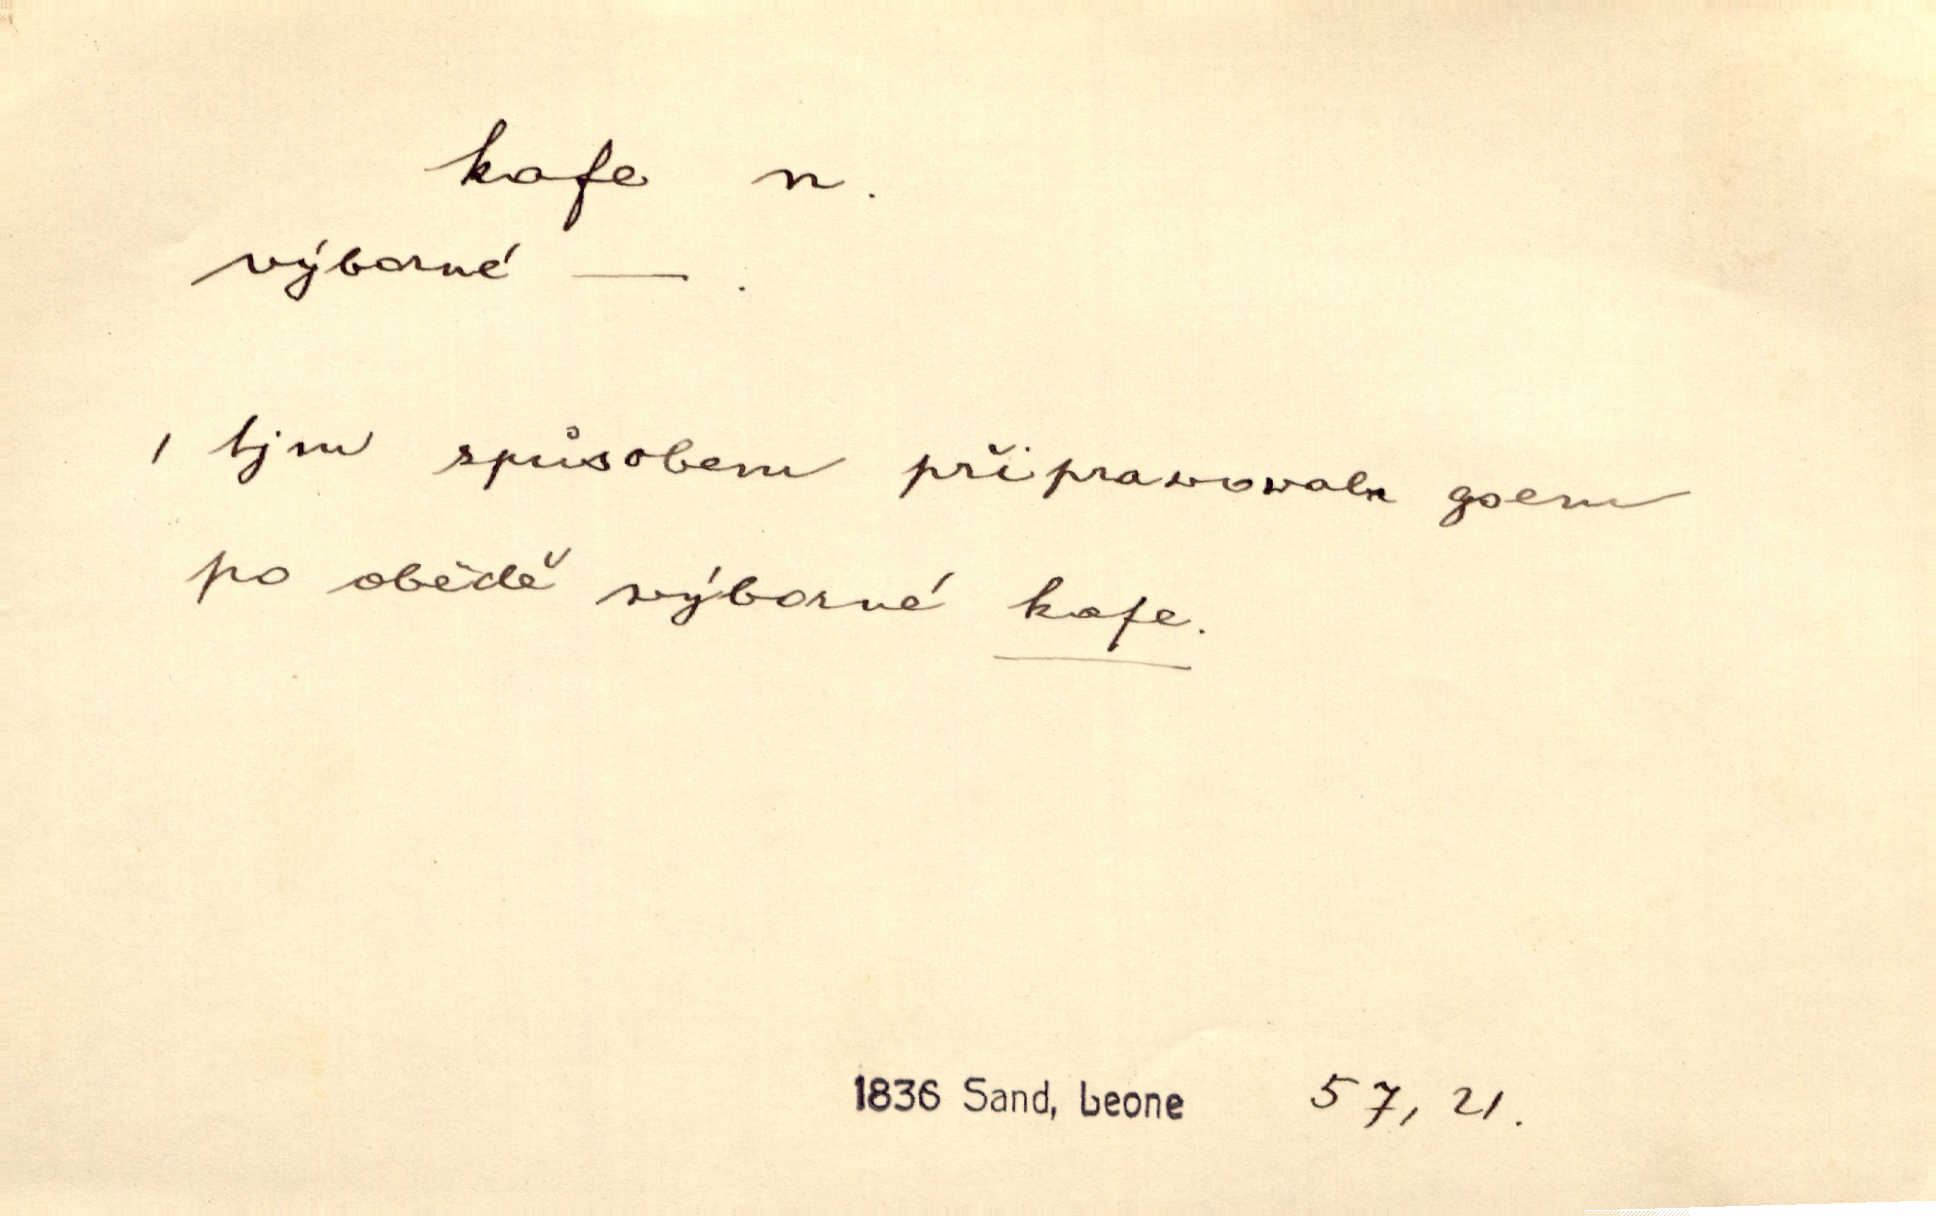 kafe n.
výborné — .
, tjm spůsobem připrawowala gsem
po obědě wýborné kafe.
1836 Sand, Leone 57, 21.